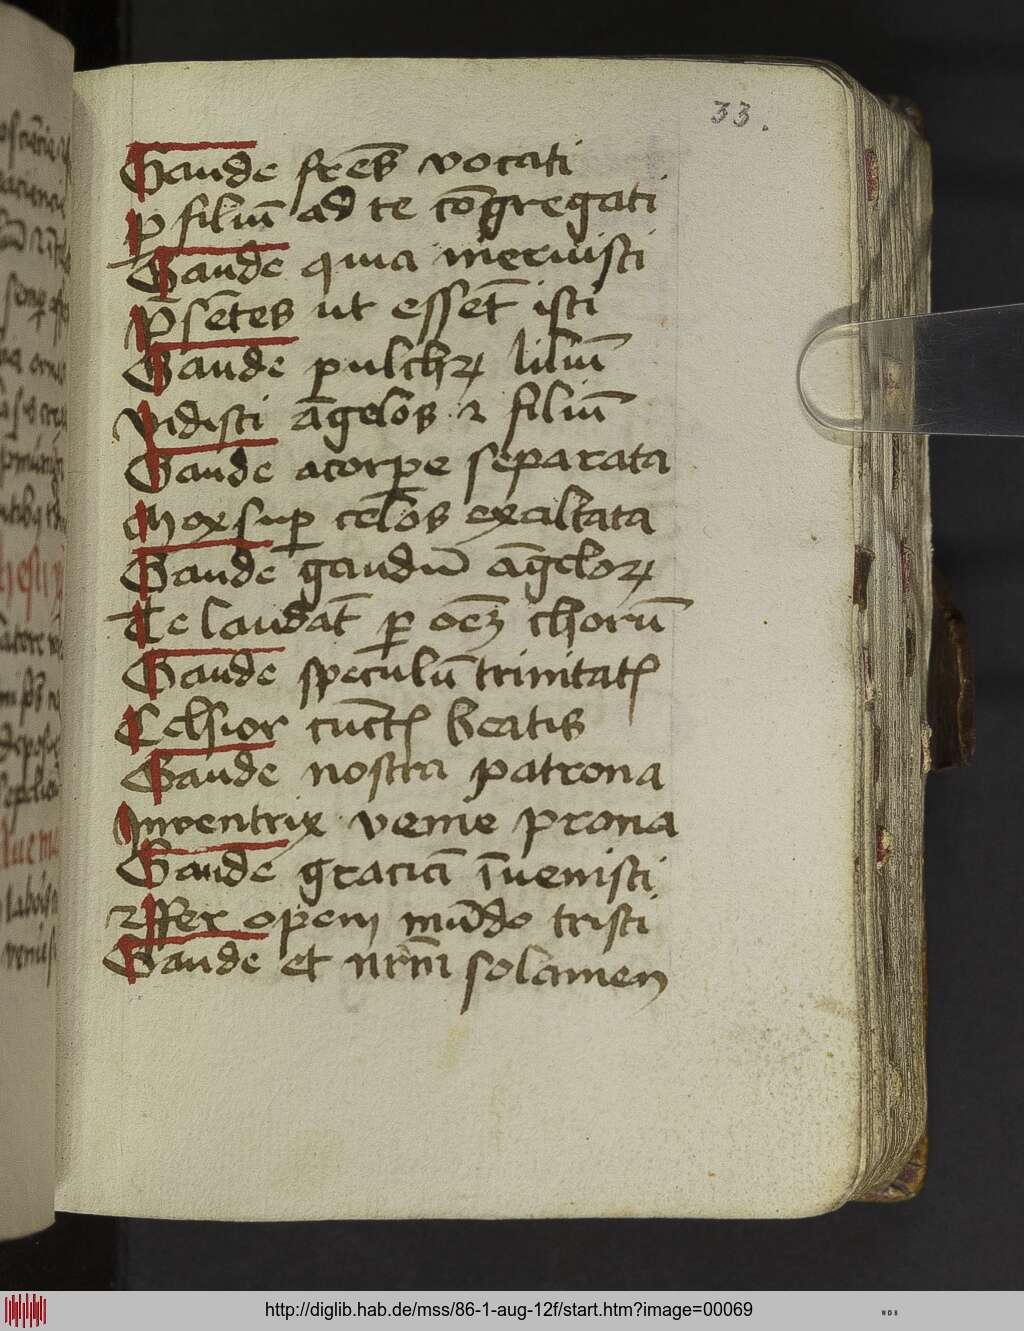 33.
Gaude fr̄es vocati
ꝑ filiū ad te cōgregati
Gaude quia meruisti
p̄sētes ut essēt isti
Gaude pulchꝝ liliū
Vidisti āgelos ⁊ filiū
Gaude acorpe separata
Mox suꝑ celos exaltata
Gaude gaudiū āgeloꝝ
Te laudāt ꝑ oēʒ chorū
Gaude speculū trinitatꝭ
Celsior cūctꝭ beatis
Gaude nostra patrona
Inventrix venie prona
Gaude graciā īuenisti
⁊ ffer opem mūdo tristi
Gaude et nr̄m solamen
http://diglib.hab.de/mss/86-1-aug-12f/start.htm?image=00069